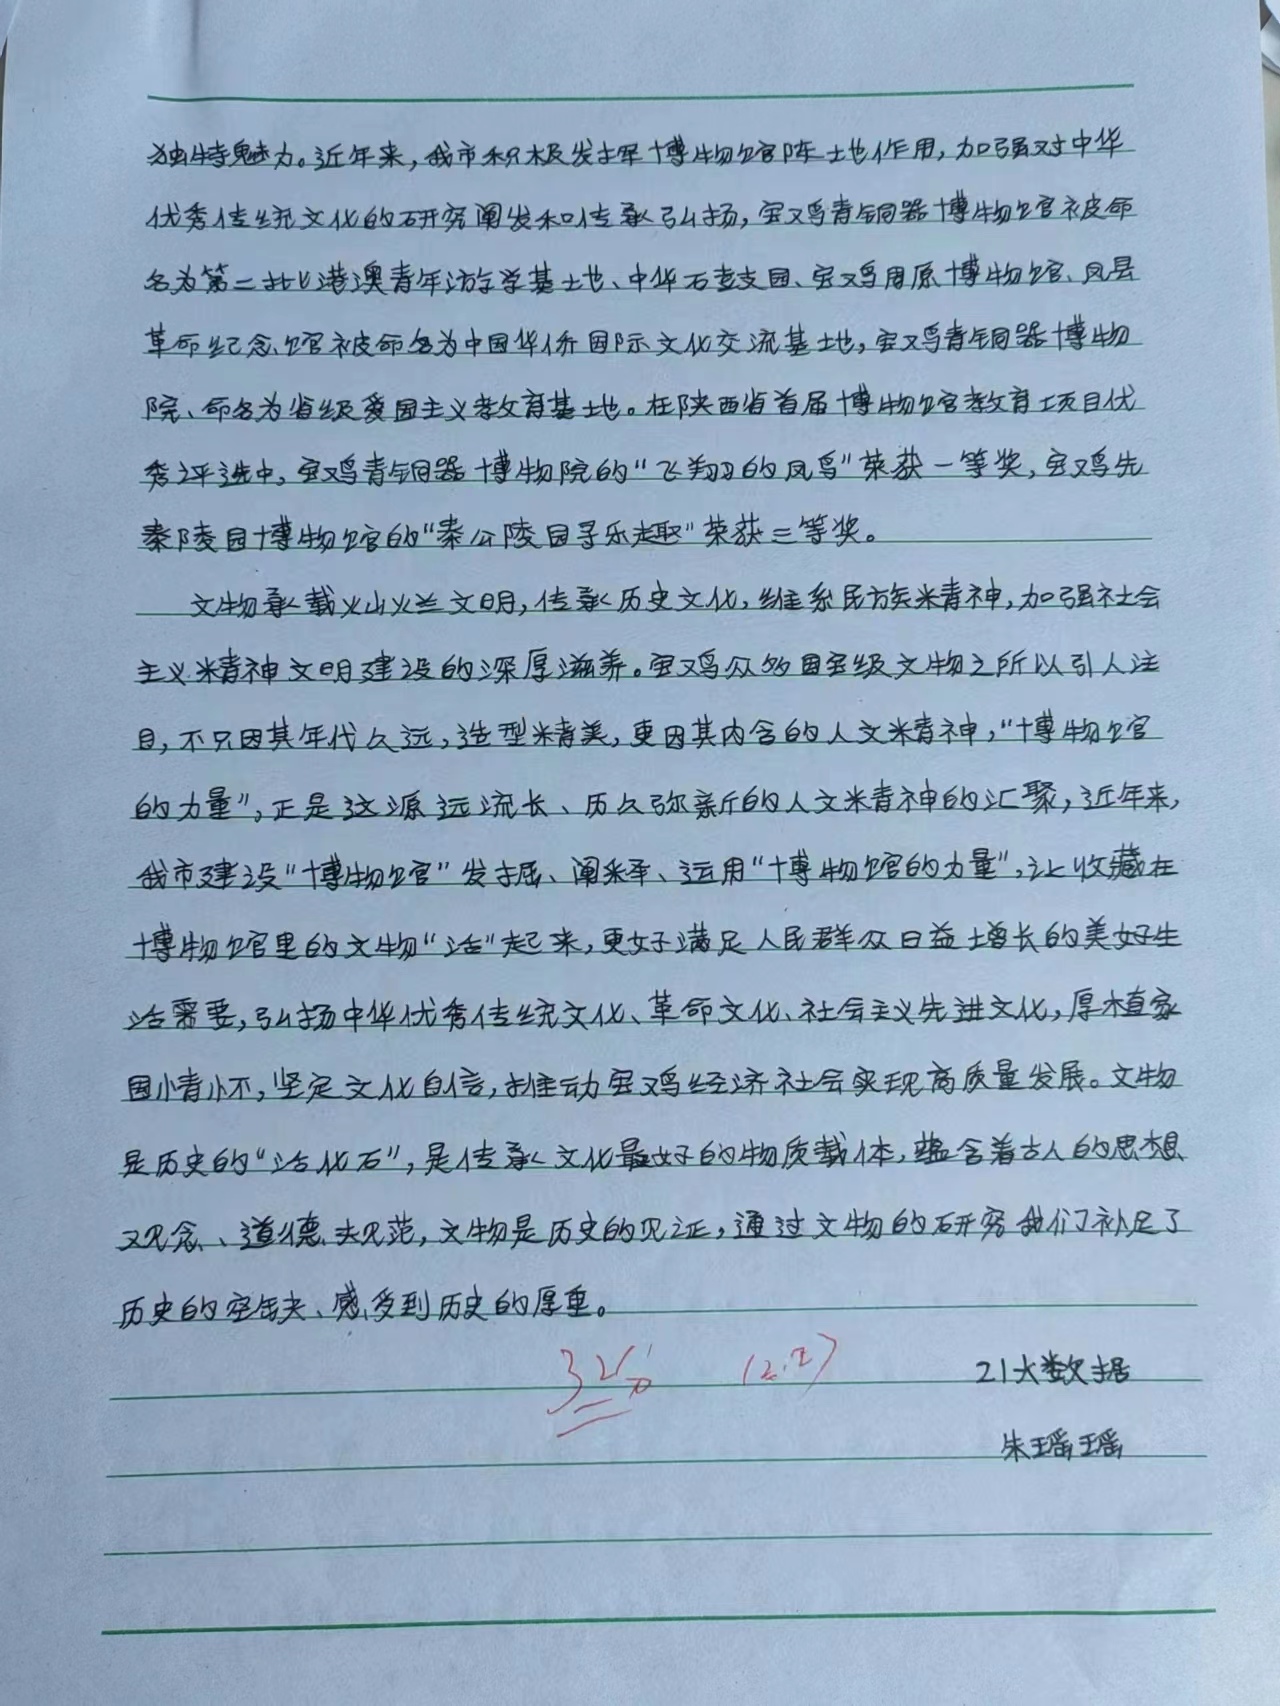 独特魅力。近年来，我市积极发挥博物馆阵地作用，加强对中华
优秀传统文化的研究阐发和传承弘扬，宝鸡青铜器博物馆被命
名为第二批港澳青年游学基地、中华石鼓园、宝鸡周原博物馆、凤县
革命纪念馆被命名为中国华侨国际文化交流基地，宝鸡青铜器博物
院、命名为省级爱国主义教育基地。在陕西省首届博物馆教育项目优
秀评选中，宝鸡青铜器博物院的“飞翔的凤鸟”荣获一等奖，宝鸡先
秦陵园博物馆的“秦公陵园寻乐趣”荣获三等奖。
文物承载灿烂文明，传承历史文化，维系民族精神，加强社会
主义精神文明建设的深厚滋养。宝鸡众多国宝级文物之所以引人注
目，不只因其年代久远，造型精美，更因其内含的人文精神，“博物馆
的力量”，正是这源远流长、历久弥新的人文精神的汇聚，近年来，
我市建设“博物馆”发掘、阐释、运用“博物馆的力量”，让收藏在
博物馆里的文物“活”起来，更好满足人民群众日益增长的美好生
活需要，弘扬中华优秀传统文化、革命文化、社会主义先进文化，厚植家
国情怀，坚定文化自信，推动宝鸡经济社会实现高质量发展。文物
是历史的“活化石”，是传承文化最好的物质载体，蕴含着古人的思想
观念、道德规范，文物是历史的见证，通过文物的研究我们补足了
历史的空缺、感受到历史的厚重。
32分
21大数据
朱瑶瑶